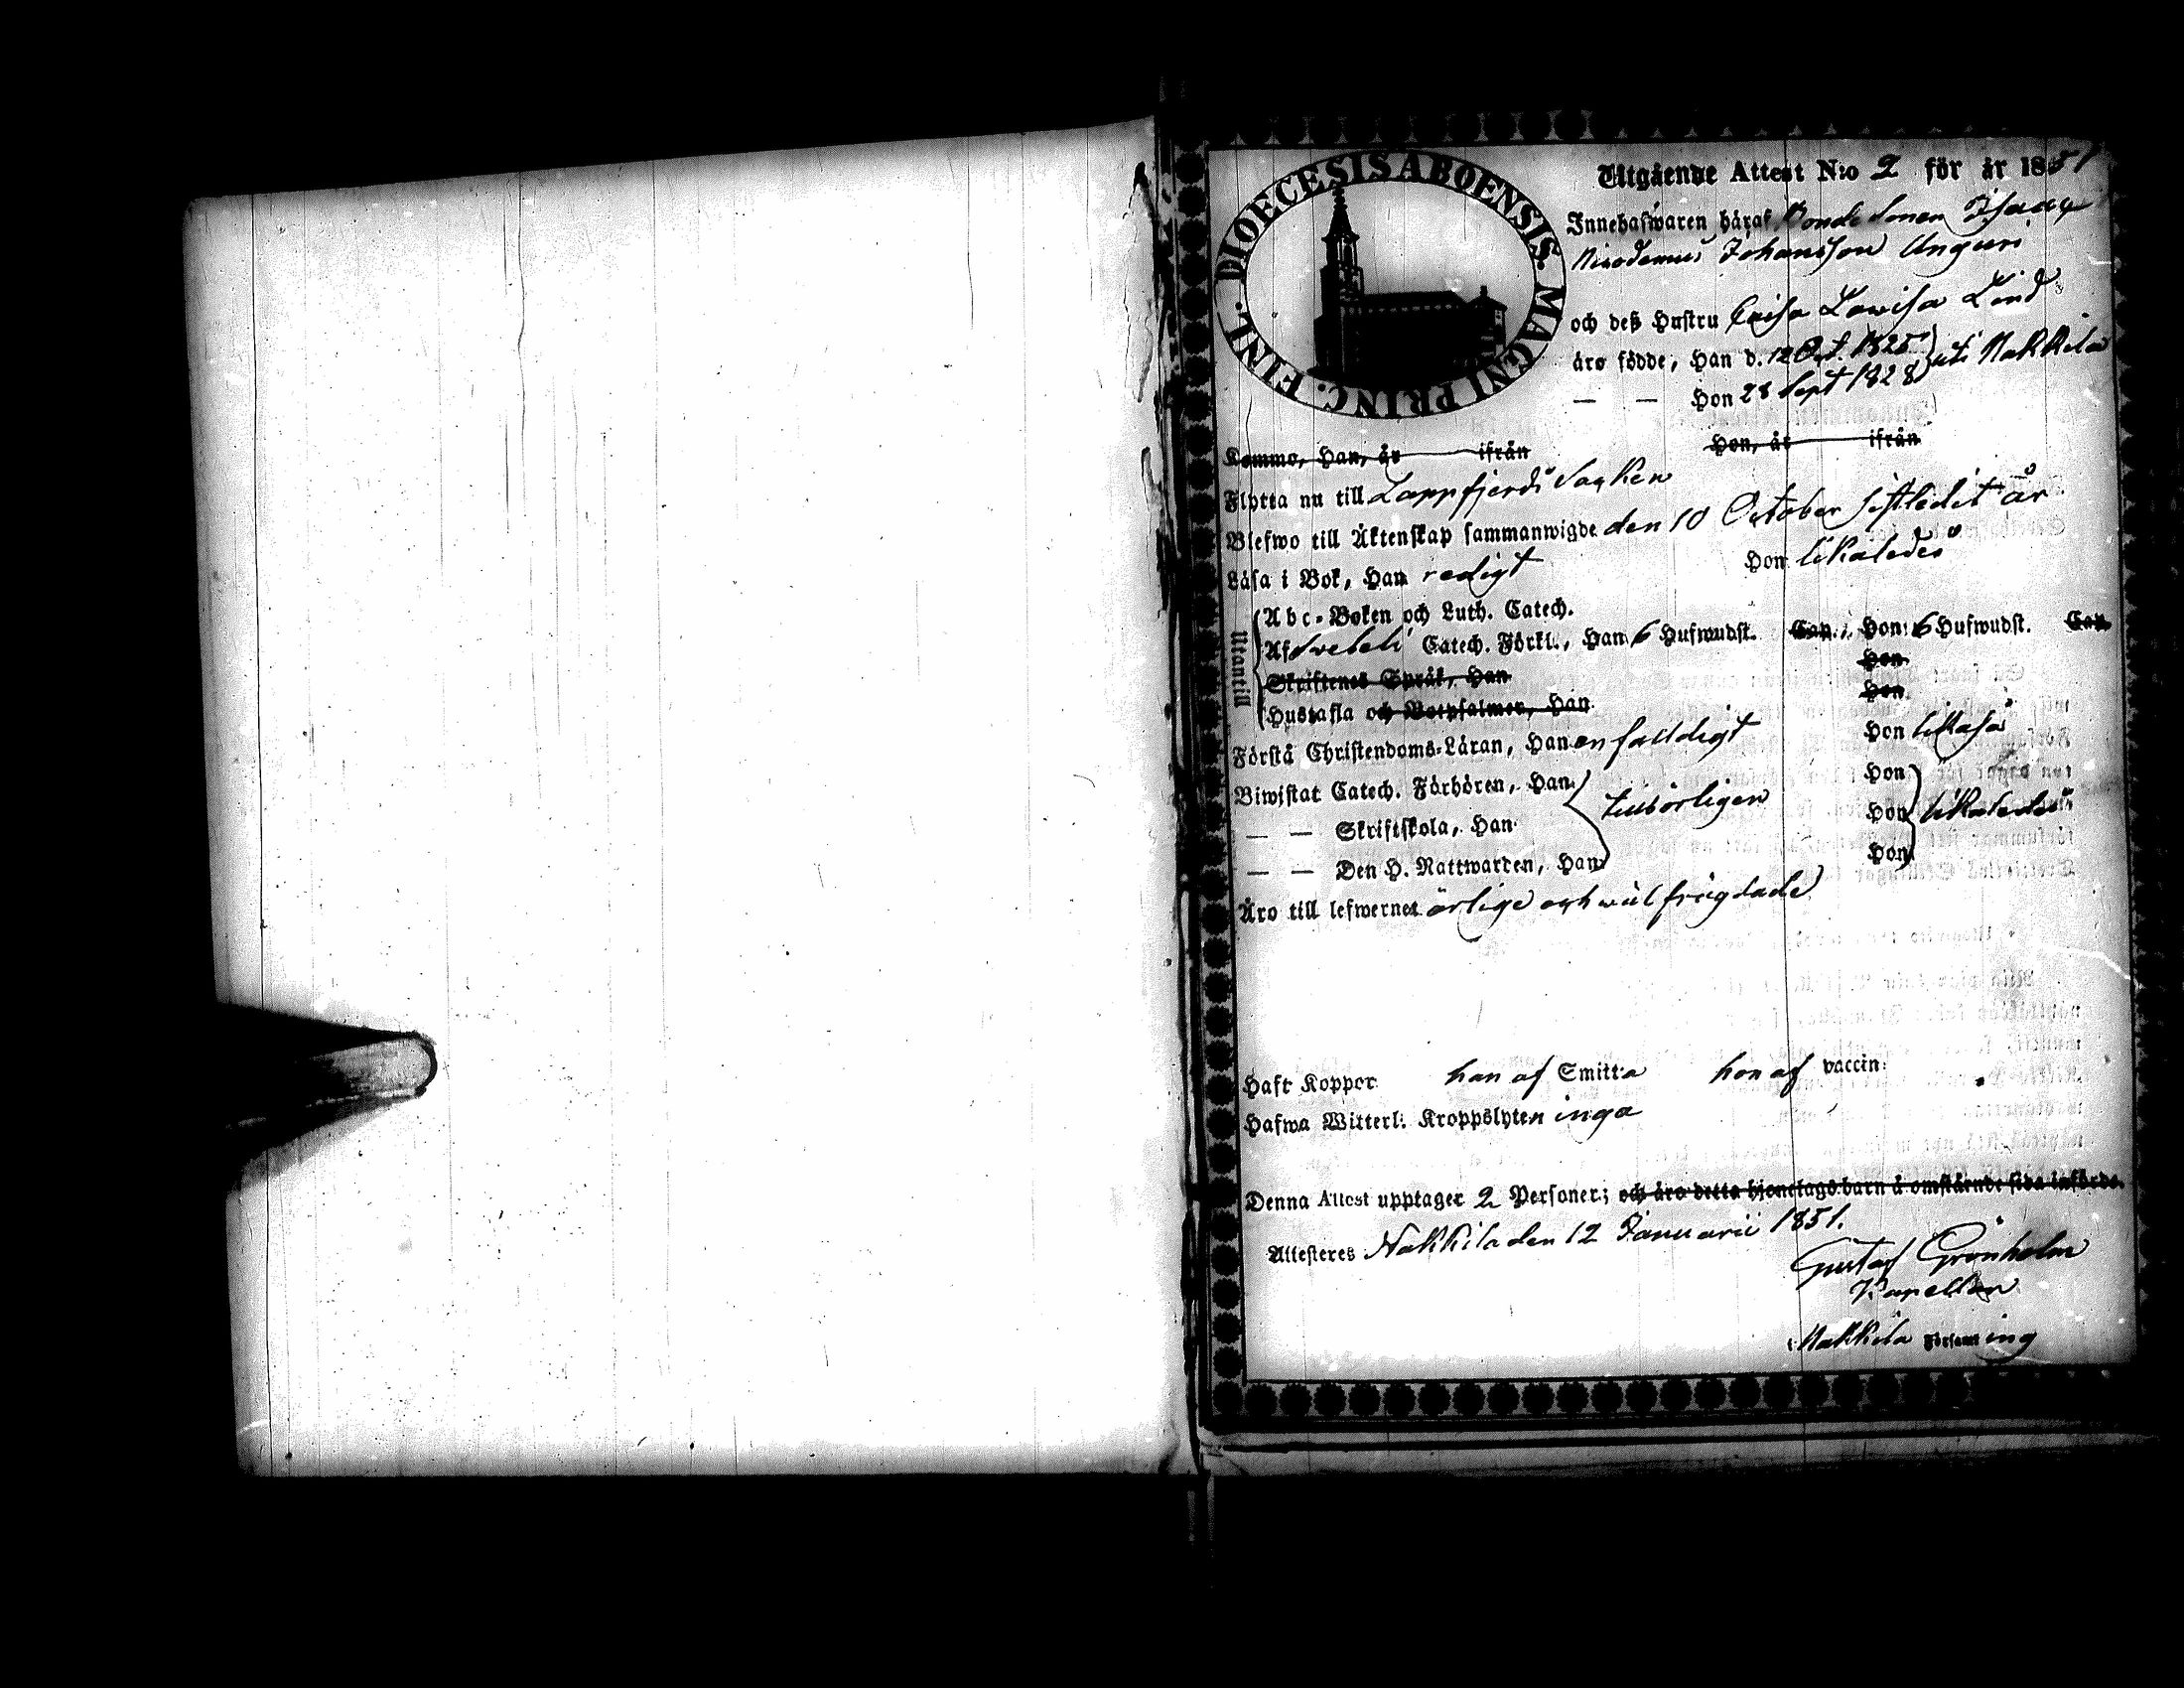 DIOECESIS ABOENSIS. MAGNI PRINC. FINL.
Utgående Attest N:o 2 för år 1851
Innehafwaren häraf Bonde Sonen Isaac
Nicodemus Johansson Unguri
och deß Hustru Caisa Lovisa Lind
äro födde, Han d. 12 Oct. 1825 uti Nakkila
— — Hon 28 Sept 1828
Kommo, Han, år ifrån Hon, år ifrån
Flytta nu till Lappfjerds Soken
Blefwo till Äktenskap sammanwigde den 10 October sistledit år
Läsa i Bok, Han redigt Hon likaledes
Utantill
Abc-Boken och Luth. Catech.
Af Svebeli Catech. Förkl., Han 6 Hufwudst. Cap., Hon 6 Hufwudst. Cap.
Skriftenes Språk, Han Hon
Hustafla och Botpsalmer, Han Hon
Förstå Christendoms-Läran, Han enfaldigt Hon likaså
Biwistat Catech. Förhören, Han Hon
— — Skriftskola, Han tillbörligen Hon likaledes
— — Den H. Nattwarden, Han Hon
Äro till lefwernet ärlige och wäl frägdade
Haft Koppor han af Smitta hon af vaccin
Hafwa Witterl: Kroppslyten inga
Denna Attest upptager 2 Personer; och äro detta hjonelags barn å omstående sida införde.
Attesteres Nakkila den 12 Januarii 1851.
Gustaf Grönholm
Kapellan
i Nakkila Församling